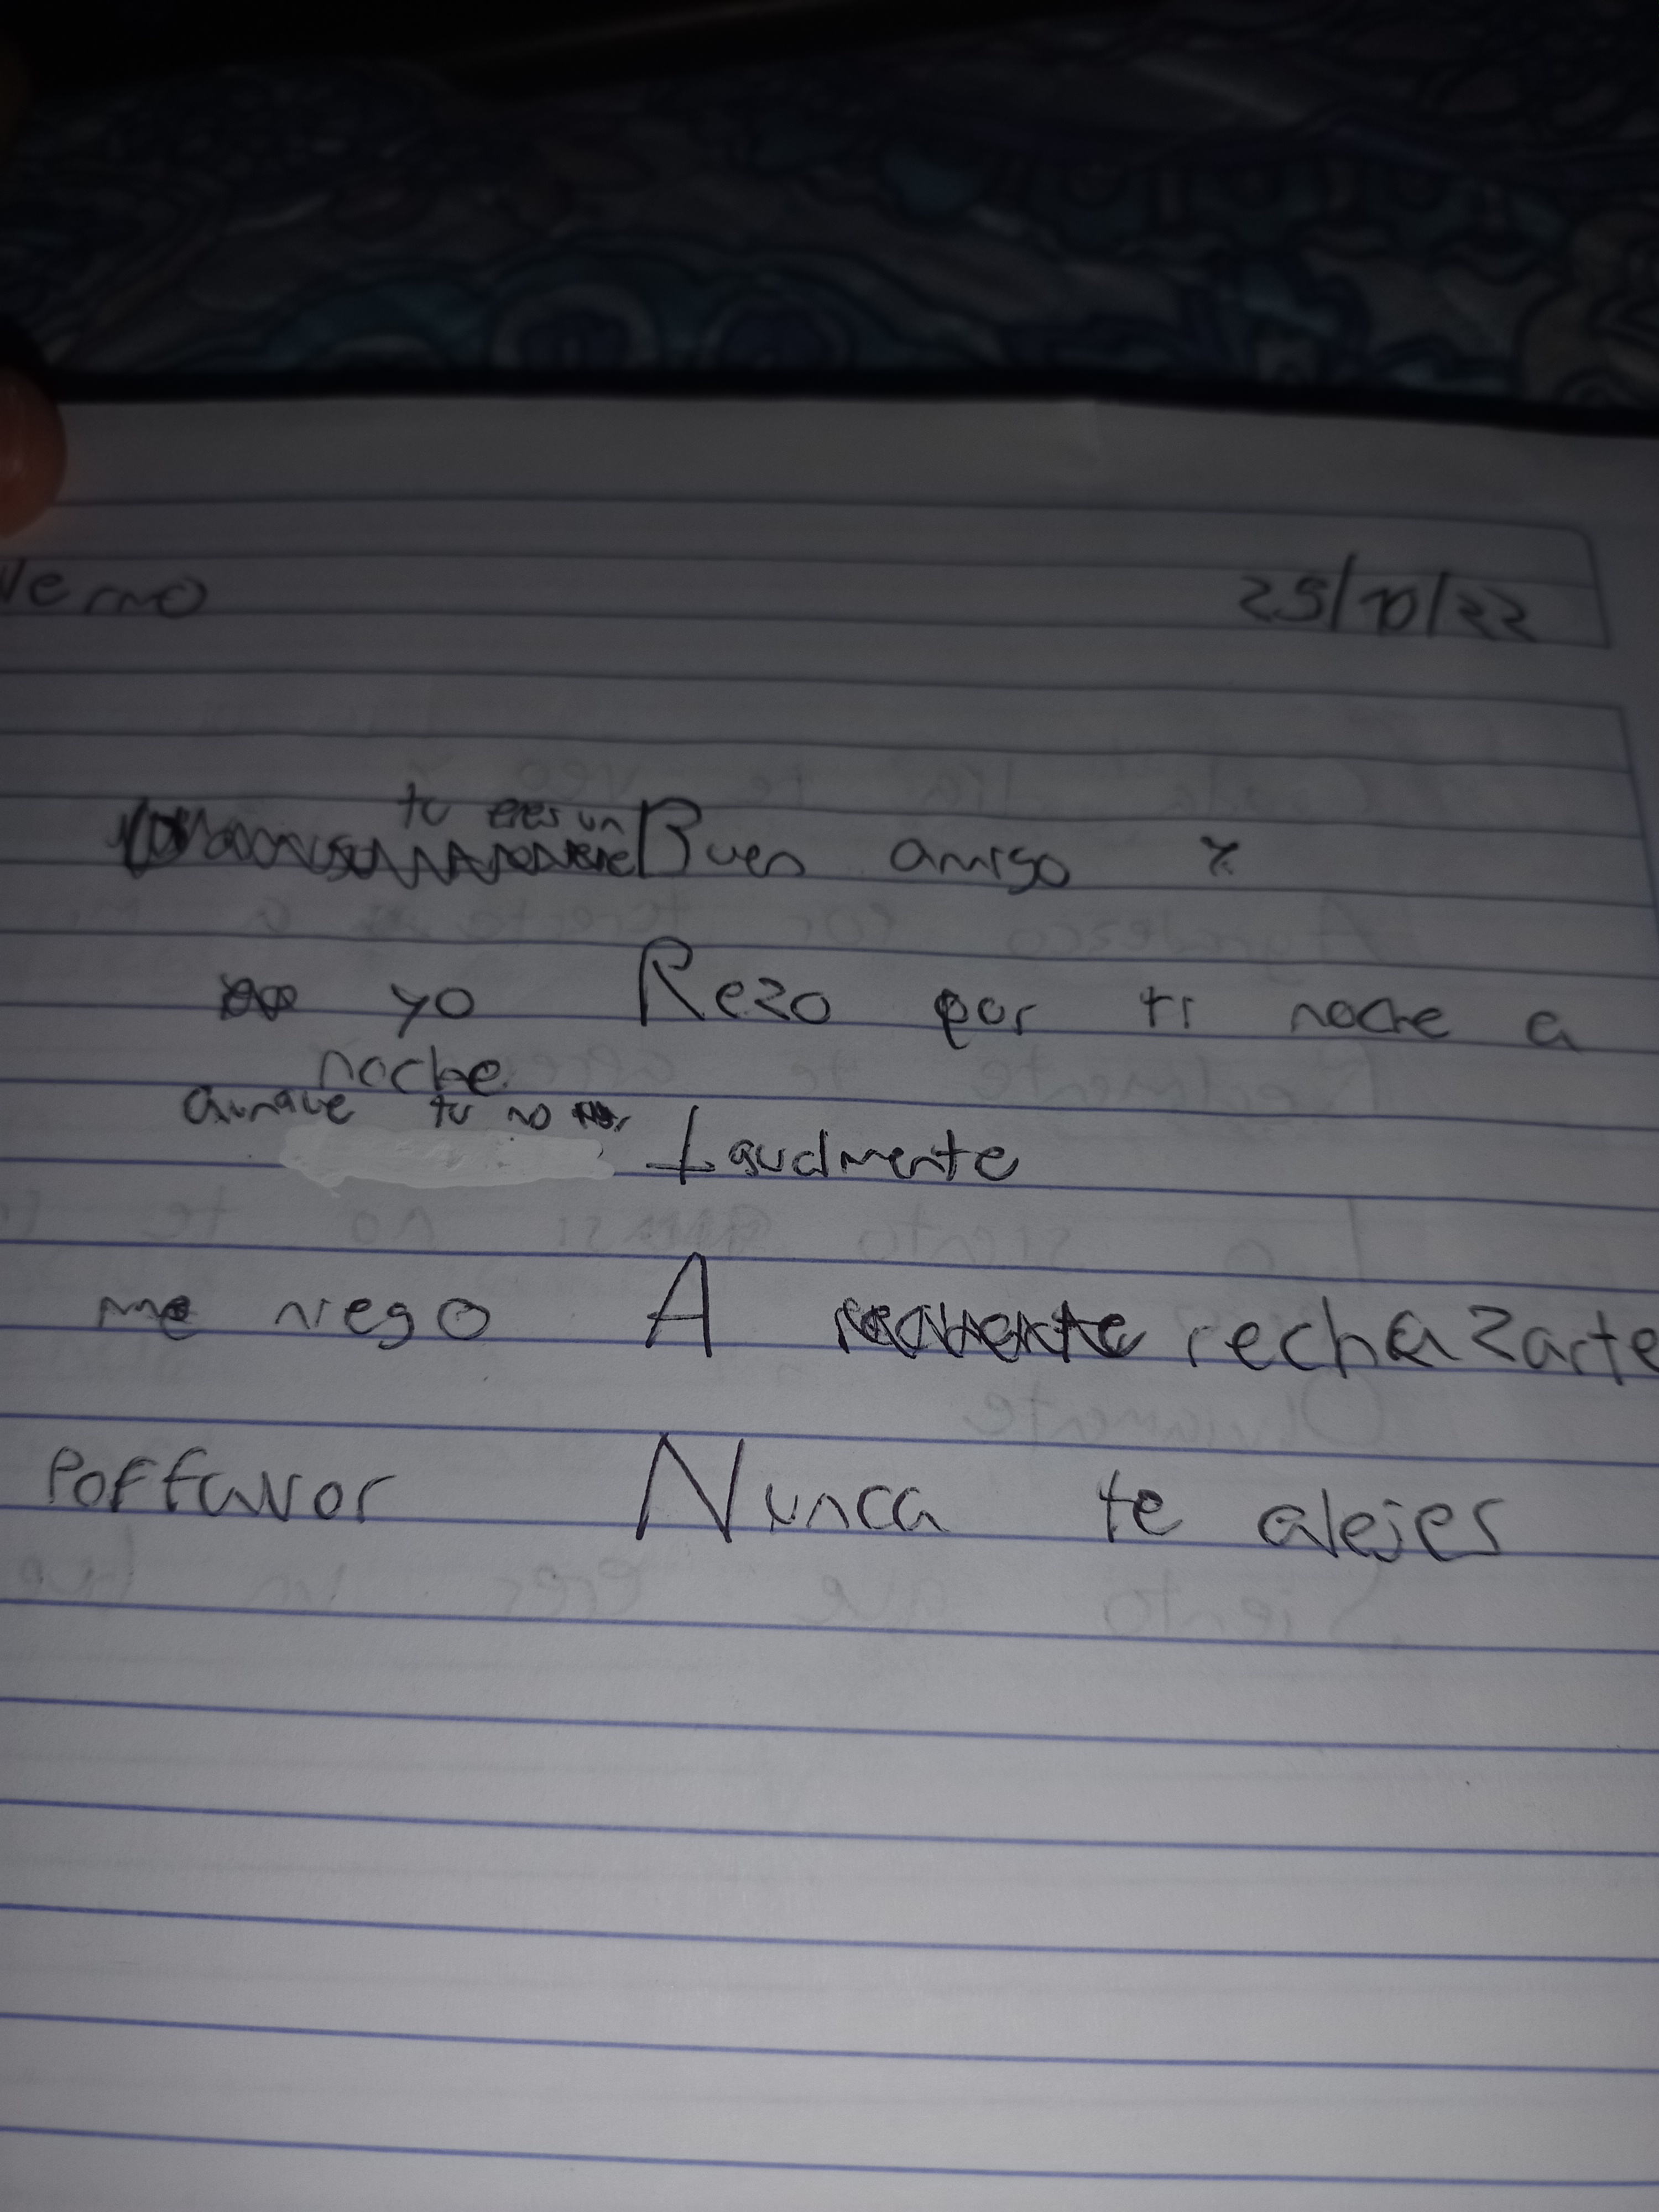 25/10/22
tu eres un Buen amigo y
yo Rezo por ti noche a
noche
aunque tu no
Igualmente
me niego A rechazarte
Porfavor Nunca te alejes